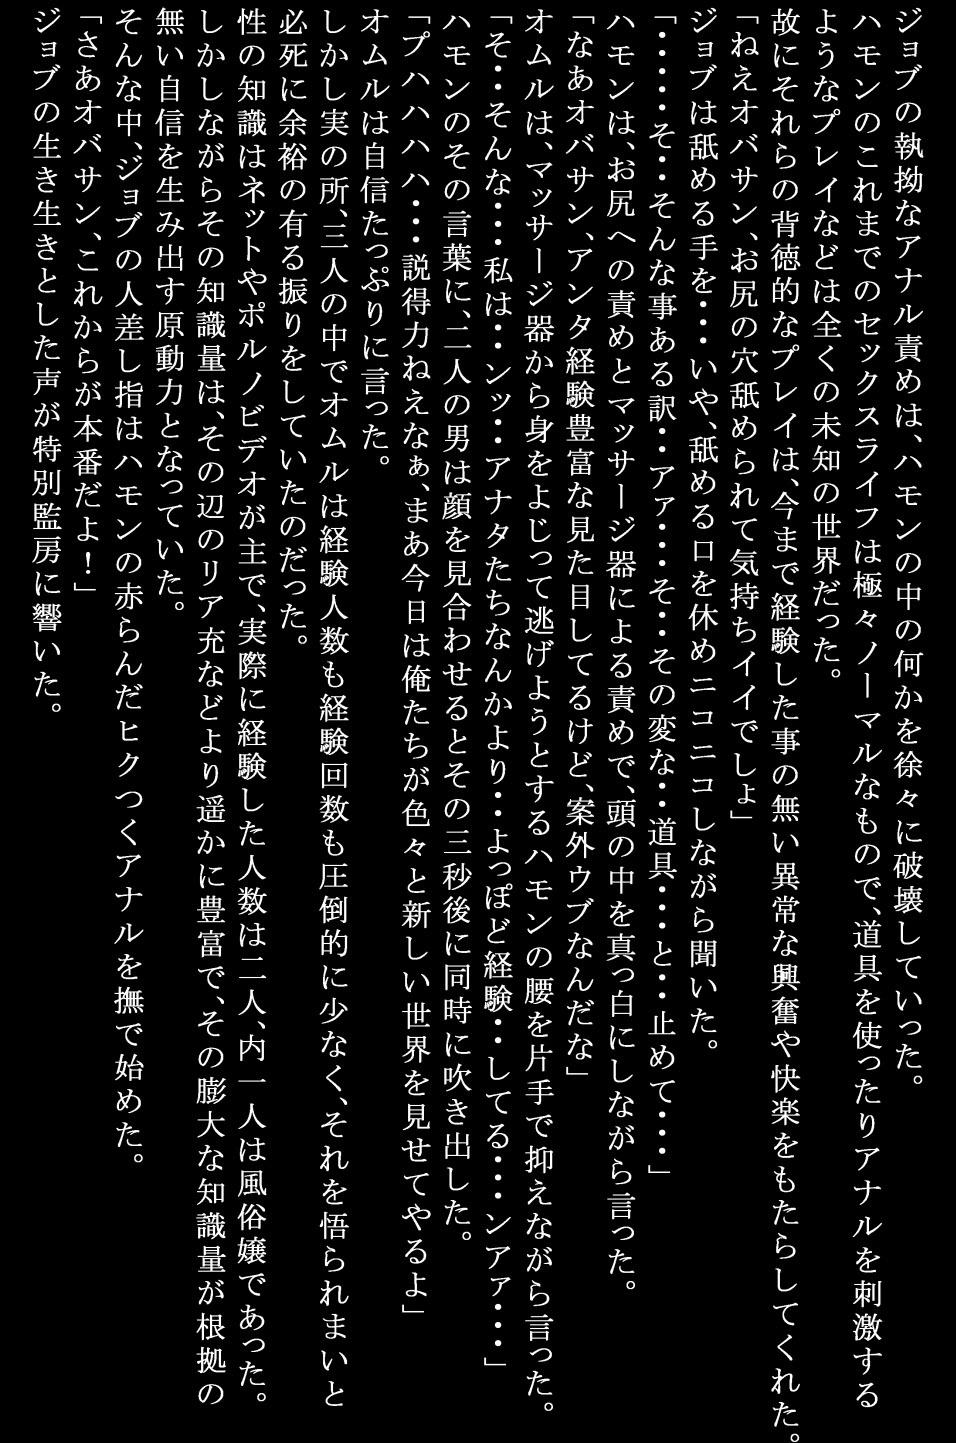 ジョブの執拗なアナル責めは、ハモンの中の何かを徐々に破壊していった。
ハモンのこれまでのセックスライフは極々ノーマルなもので、道具を使ったりアナルを刺激する
ようなプレイなどは全くの未知の世界だった。
故にそれらの背徳的なプレイは、今まで経験した事の無い異常な興奮や快楽をもたらしてくれた。
「ねえオバサン、お尻の穴舐められて気持ちイイでしょ」
ジョブは舐める手を・・・いや、舐める口を休めニコニコしながら聞いた。
「・・・・そ・・そんな事ある訳・・・アァ・・・そ・・その変な・・道具・・・と・・止めて・・・」
ハモンは、お尻への責めとマッサージ器による責めで、頭の中を真っ白にしながら言った。
「なあオバサン、アンタ経験豊富な見た目してるけど、案外ウブなんだな」
オムルは、マッサージ器から身をよじって逃げようとするハモンの腰を片手で抑えながら言った。
「そ・・そんな・・・私は・・ンッ・・アナタたちなんかより・・よっぽど経験・・してる・・・ンアァ・・・」
ハモンのその言葉に、二人の男は顔を見合わせるとその三秒後に同時に吹き出した。
「プハハハハ・・・説得力ねえなぁ、まあ今日は俺たちが色々と新しい世界を見せてやるよ」
オムルは自信たっぷりに言った。
しかし実の所、三人の中でオムルは経験人数も経験回数も圧倒的に少なく、それを悟られまいと
必死に余裕の有る振りをしていたのだった。
性の知識はネットやポルノビデオが主で、実際に経験した人数は二人、内一人は風俗嬢であった。
しかしながらその知識量は、その辺のリア充などより遥かに豊富で、その膨大な知識量が根拠の
無い自信を生み出す原動力となっていた。
そんな中、ジョブの人差し指はハモンの赤らんだヒクつくアナルを撫で始めた。
「さあオバサン、これからが本番だよ！」
ジョブの生き生きとした声が特別監房に響いた。